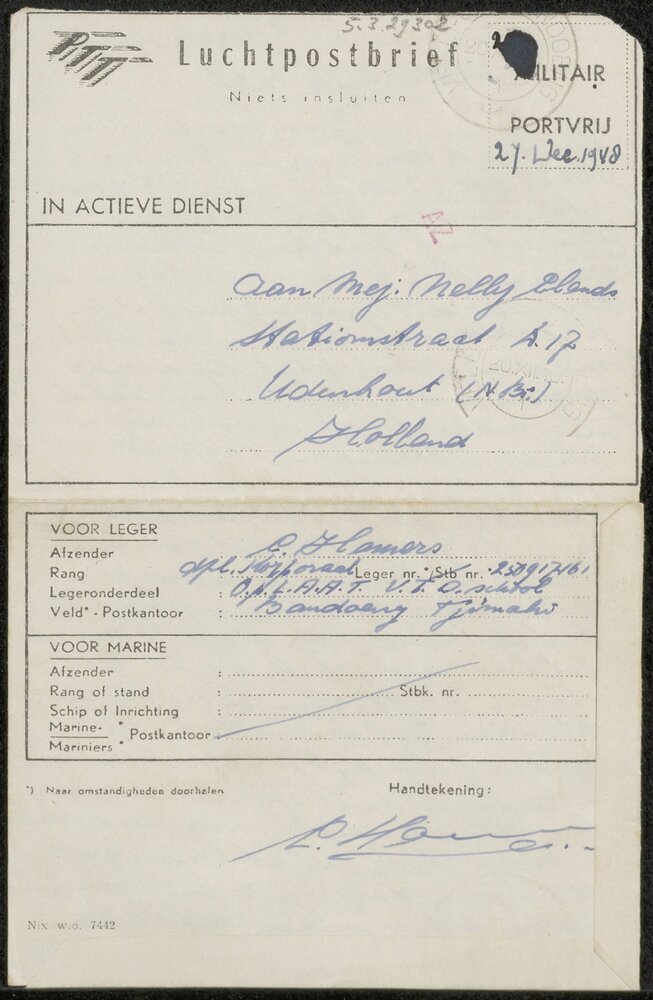 5.3.29302
PTT
Luchtpostbrief
Niets insluiten
MILITAIR
PORTVRIJ
27. Dec. 1948
IN ACTIEVE DIENST
AZ
Aan Mej. Nelly Elands
Stationstraat A. 17
Udenhout (N Br.)
Holland
VOOR LEGER
Afzender : C. Hamers
Rang dpl. Korporaal Leger nr.*/Stb nr. 250917161
Legeronderdeel : O.p.L.A.A.T. V.T.O. school
Veld* - Postkantoor : Bandoeng Tjimahi
VOOR MARINE
Afzender :
Rang of stand : Stbk. nr.
Schip of Inrichting :
Marine- *
Mariniers * Postkantoor
*) Naar omstandigheden doorhalen
Handtekening:
Nix w.o. 7442